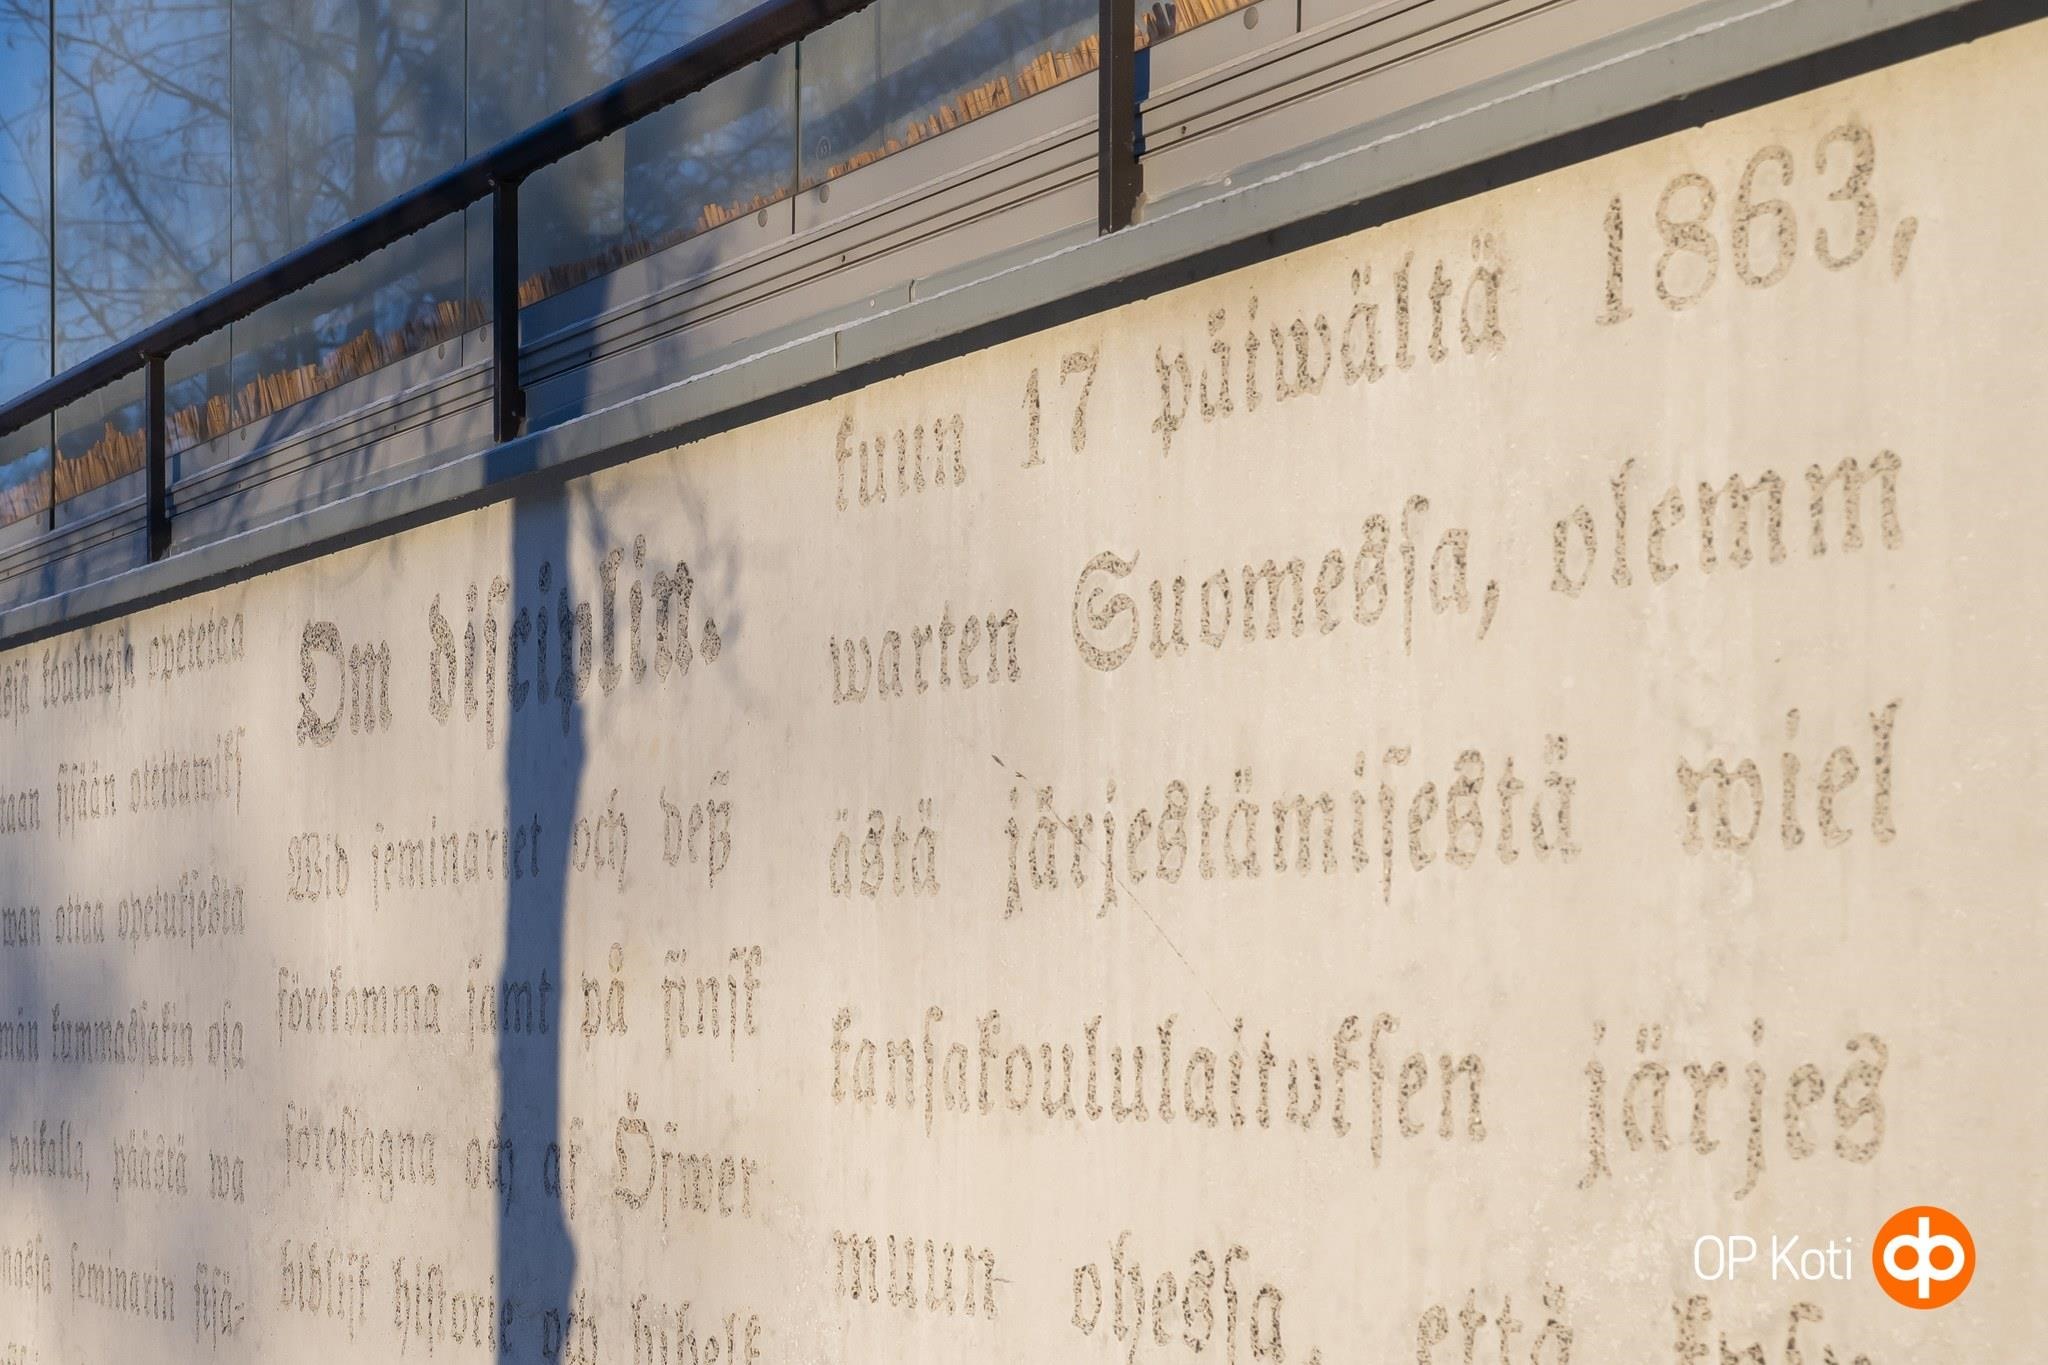 kouluissa opetetaa
taan sisään otettawiks
wan ottaa opetuksesta
män kummassakin osa
paikalla, päästä wa
nassa seminarin sisä-
Om disciplin.
Wid seminariet och deß
förekomma samt på finsk
föreslagna och af Öfwer
biblisk historie och
kuun 17 päiwältä 1863,
warten Suomessa, olemm
ästä järjestämisestä wiel
kansakoululaitoksen järjes
muun ohessa, että
OP Koti